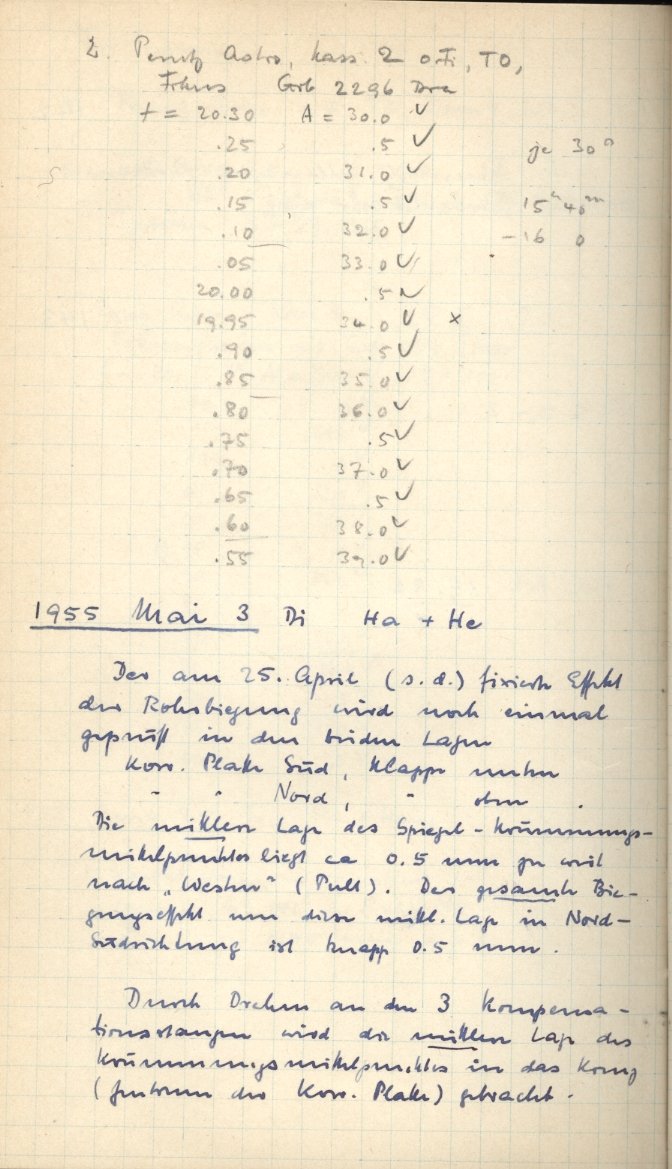 2. Perutz Astro, Kass. 2 o. Fi, TO,
Fokus Grb 2296 Dra
t = 20.30 A = 30.0 ✓
.25 .5 ✓ je 30ˢ
.20 31.0 ✓
.15 .5 ✓ 15ʰ 40ᵐ
.10 32.0 ✓ -16 0
.05 33.0 ✓
20.00 .5 ✓
19.95 34.0 ✓ x
.90 .5 ✓
.85 35.0 ✓
.80 36.0 ✓
.75 .5 ✓
.70 37.0 ✓
.65 .5 ✓
.60 38.0 ✓
.55 39.0 ✓
1955 Mai 3 Di Ha + He
Der am 25. April (s. d.) fixierte Effekt
der Rohrbiegung wird noch einmal
geprüft in den beiden Lagen
Korr. Platte Süd, Klappe unten
" " Nord, " oben.
Die mittlere Lage des Spiegel-Krümmungs-
mittelpunktes liegt ca 0.5 mm zu weit
nach „Westen" (Pult). Der gesamte Bie-
gungseffekt um diese mittl. Lage in Nord-
Südrichtung ist knapp 0.5 mm.
Durch Drehen an den 3 Kompensa-
tionsstangen wird die mittlere Lage des
Krümmungsmittelpunktes in das Kreuz
(Zentrum der Korr. Platte) gebracht.